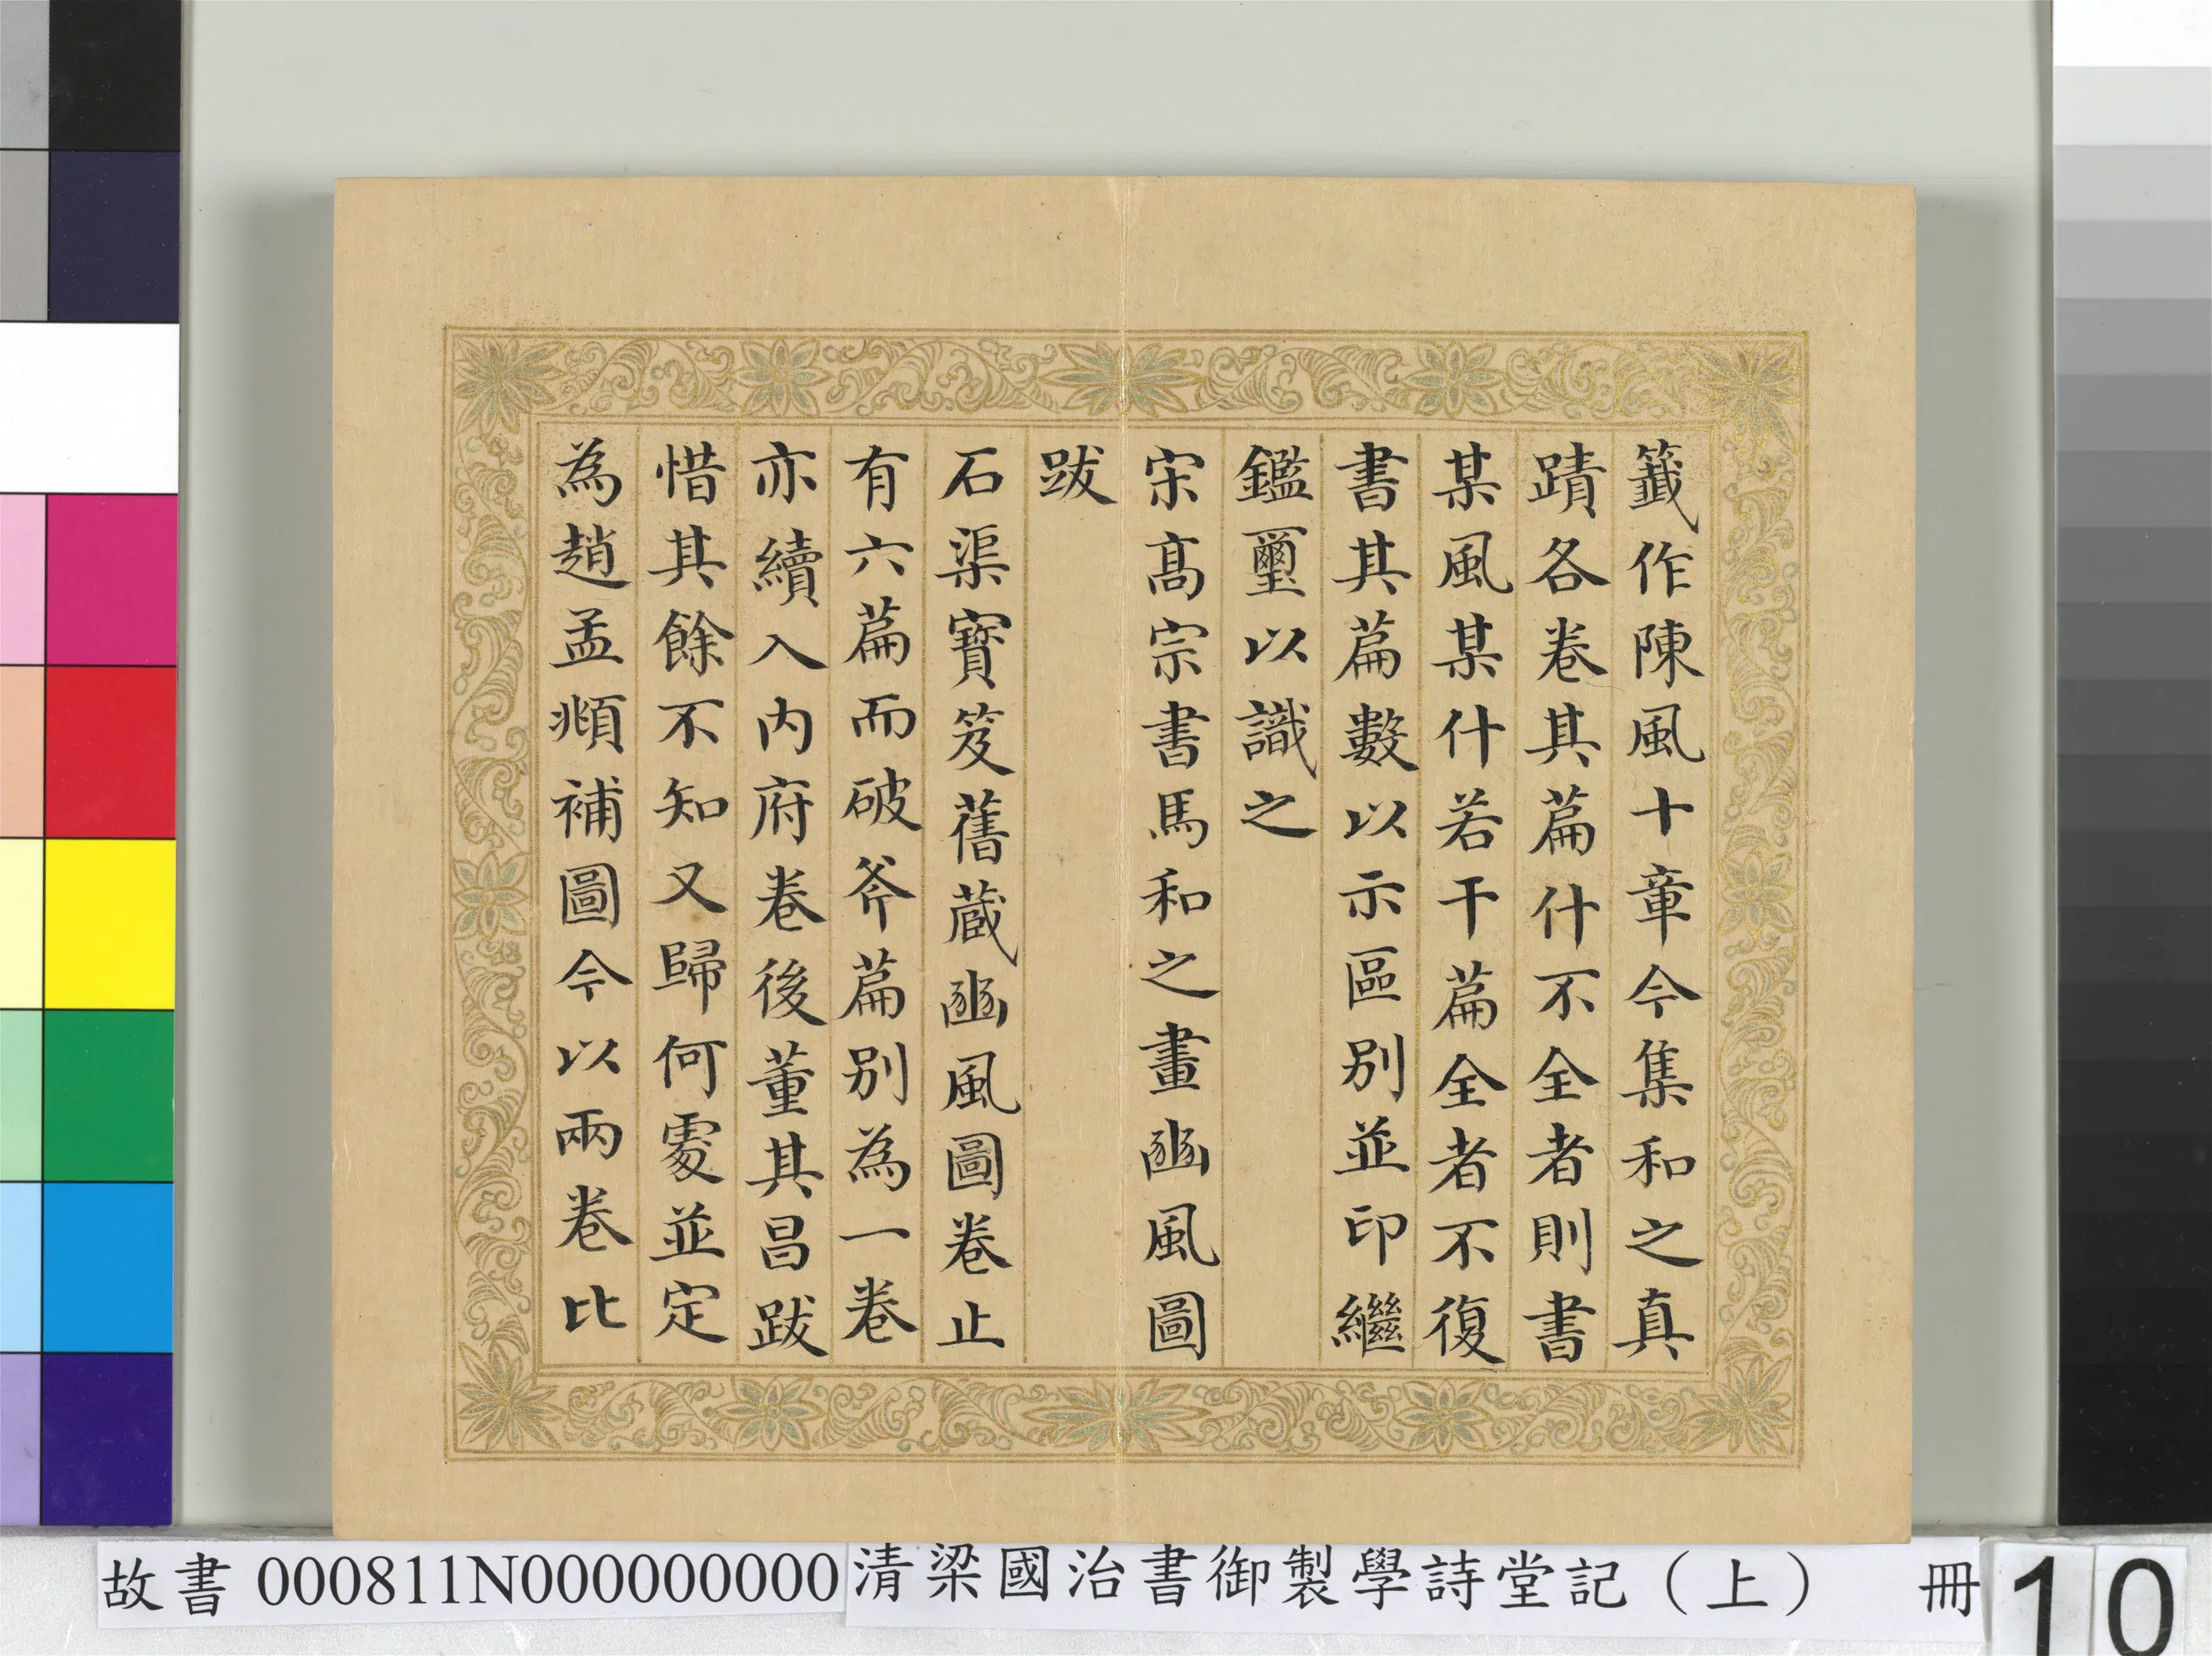 籤作陳風十章今集和之真
蹟各卷其篇什不全者則書
某風某什若干篇全者不復
書其篇數以示區别並印繼
鑑璽以識之
宋髙宗書馬和之畫豳風圖
跋
石渠寶笈舊蔵豳風圖卷止
有六篇而破斧篇别為一卷
亦續入内府卷後董其昌跋
惜其餘不知又歸何處並定
為趙孟頫補圖今以兩卷比
故書 000811N000000000 清梁國治書御製學詩堂記（上） 冊 10